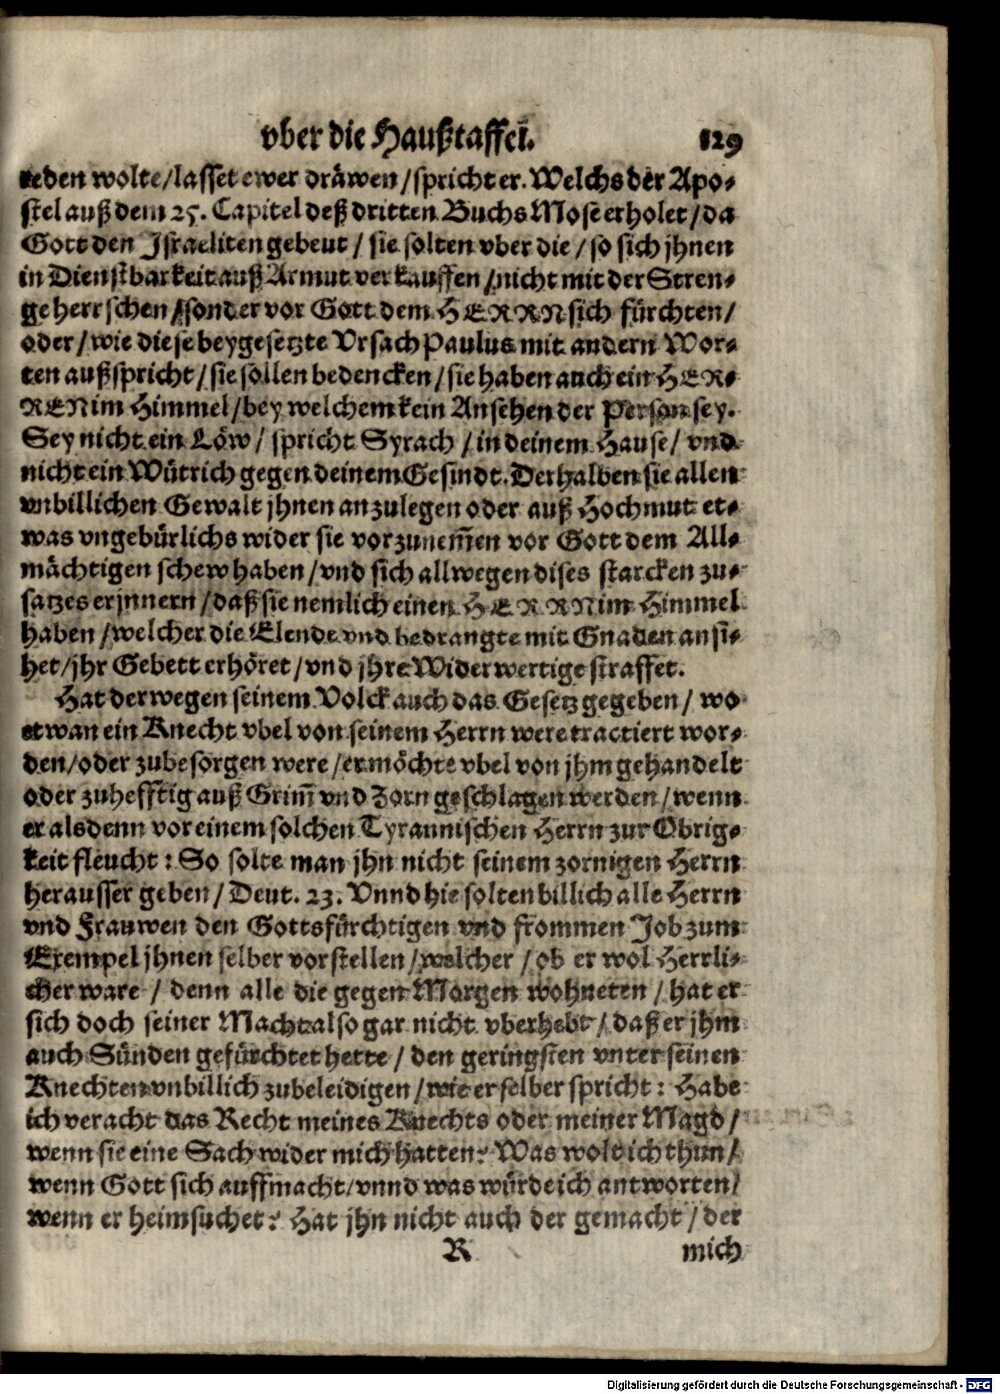 vber die Haußtaffel. 129
reden wolte/lasset ewer dräwen/spricht er. Welchs der Apo-
stel auß dem 25. Capitel deß dritten Buchs Mose erholet/da
Gott den Israeliten gebeut / sie solten vber die / so sich jhnen
in Dienstbarkeit auß Armut verkauffen / nicht mit der Stren-
ge herrschen / sonder vor Gott dem HERRN sich fürchten/
oder / wie diese beygesetzte Vrsach Paulus mit andern Wor-
ten außspricht/ sie sollen bedencken / sie haben auch ein HER-
REN im Himmel/ bey welchem kein Ansehen der Person sey.
Sey nicht ein Löw / spricht Syrach / in deinem Hause/ vnd
nicht ein Wütrich gegen deinem Gesindt. Derhalben sie allen
vnbillichen Gewalt jhnen anzulegen oder auß Hochmut et-
was vngebürlichs wider sie vorzunem̃en vor Gott dem All-
mächtigen schew haben / vnd sich allwegen dises starcken zu-
satzes erjnnern / daß sie nemlich einen HERRN im Himmel
haben / welcher die Elende vnd bedrangte mit Gnaden ansi-
het/ jhr Gebett erhöret/ vnd jhre Widerwertige straffet.
Hat derwegen seinem Volck auch das Gesetz gegeben / wo
etwan ein Knecht vbel von seinem Herrn were tractiert wor-
den/ oder zubesorgen were / er möchte vbel von jhm gehandelt
oder zuhefftig auß Grim̃ vnd Zorn geschlagen werden / wenn
er alsdenn vor einem solchen Tyrannischen Herrn zur Obrig-
keit fleucht: So solte man jhn nicht seinem zornigen Herrn
herausser geben / Deut. 23. Vnnd hie solten billich alle Herrn
vnd Frauwen den Gottsfürchtigen vnd frommen Job zum
Exempel jhnen selber vorstellen / welcher / ob er wol Herrli-
cher ware / denn alle die gegen Morgen wohneten / hat er
sich doch seiner Macht also gar nicht vberhebt / daß er jhm
auch Sünden gefürchtet hette / den geringsten vnter seinen
Knechten vnbillich zubeleidigen / wie er selber spricht: Habe
ich veracht das Recht meines Knechts oder meiner Magd /
wenn sie eine Sach wider mich hatten: Was wolt ich thun /
wenn Gott sich auffmacht/ vnnd was würde ich antworten/
wenn er heimsuchet: Hat jhn nicht auch der gemacht / der
R mich
Digitalisierung gefördert durch die Deutsche Forschungsgemeinschaft - DFG